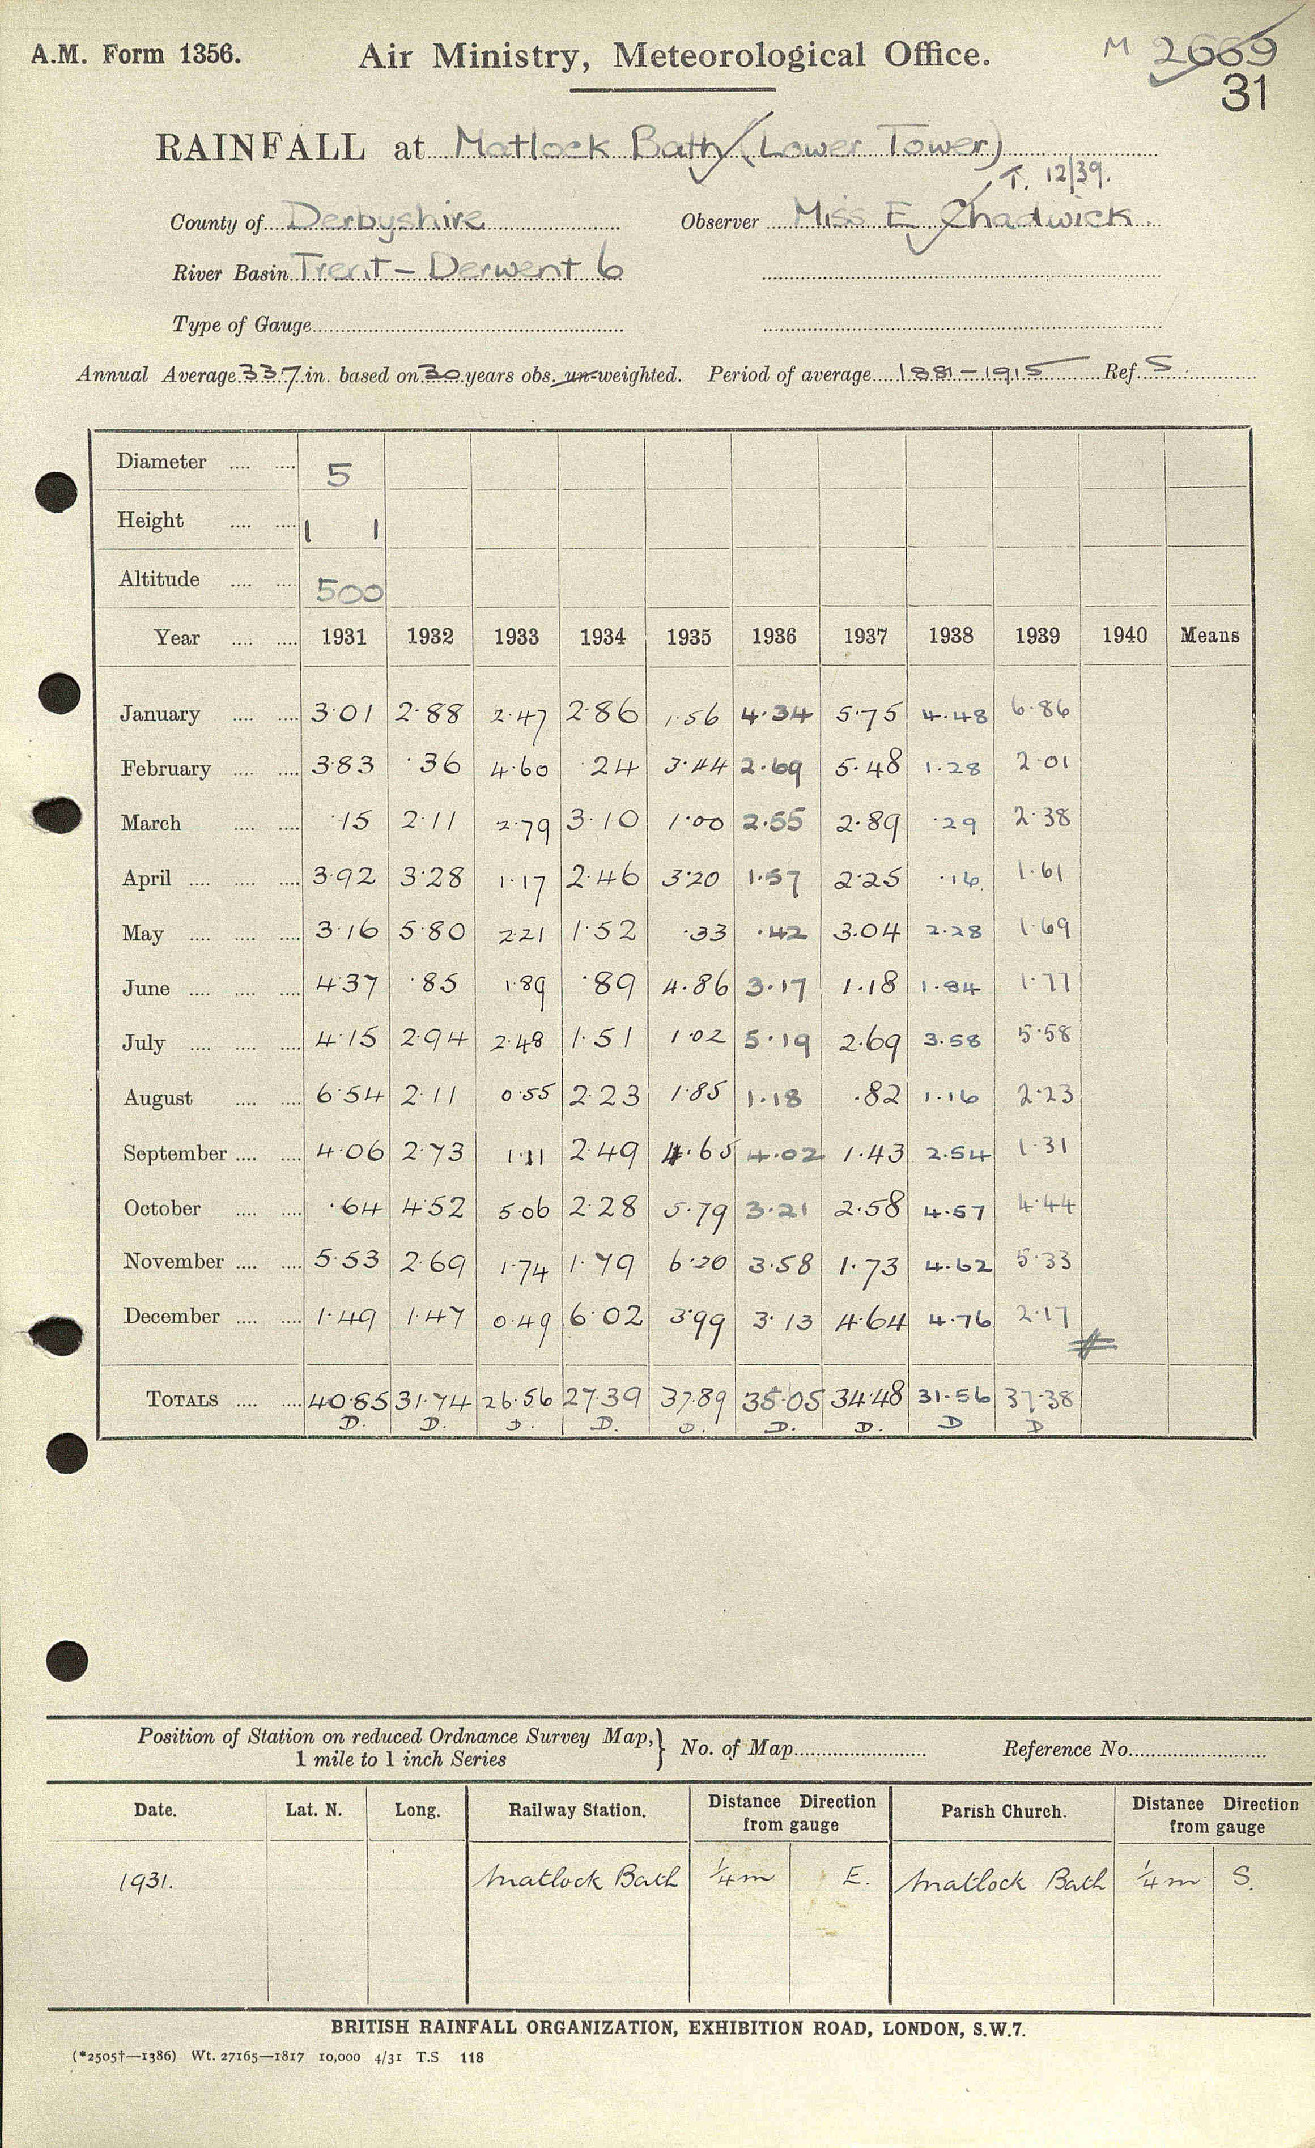 A.M. Form 1356. Air Ministry, Meteorological Office. M 2669
31
RAINFALL at Matlock Bath (Lower Tower)
T. 12/39.
County of Derbyshire Observer Miss E Chadwick
River Basin Trent - Derwent 6
Type of Gauge
Annual Average 33.7 in. based on 30 years obs. un-weighted. Period of average 1881-1915 Ref. S
Diameter 5
Height 1 1
Altitude 500
Year 1931 1932 1933 1934 1935 1936 1937 1938 1939 1940 Means
January 3.01 2.88 2.47 2.86 1.56 4.34 5.75 4.48 6.86
February 3.83 .36 4.60 .24 3.44 2.69 5.48 1.28 2.01
March .15 2.11 2.79 3.10 1.00 2.55 2.89 .29 2.38
April 3.92 3.28 1.17 2.46 3.20 1.57 2.25 .16 1.61
May 3.16 5.80 2.21 1.52 .33 .42 3.04 2.28 1.69
June 4.37 .85 1.89 .89 4.86 3.17 1.18 1.84 1.77
July 4.15 2.94 2.48 1.51 1.02 5.19 2.69 3.58 5.58
August 6.54 2.11 0.55 2.23 1.85 1.18 .82 1.16 2.23
September 4.06 2.73 1.11 2.49 4.65 4.02 1.43 2.54 1.31
October .64 4.52 5.06 2.28 5.79 3.21 2.58 4.57 4.44
November 5.53 2.69 1.74 1.79 6.20 3.58 1.73 4.62 5.33
December 1.49 1.47 0.49 6.02 3.99 3.13 4.64 4.76 2.17
#
TOTALS 40.85 31.74 26.56 27.39 37.89 35.05 34.48 31.56 37.38
D. D. D. D. D. D. D. D D
Position of Station on reduced Ordnance Survey Map, } No. of Map Reference No.
1 mile to 1 inch Series
Date. Lat. N. Long. Railway Station. Distance Direction from gauge Parish Church. Distance Direction from gauge
1931. Matlock Bath 1/4 m E. Matlock Bath 1/4 m S.
BRITISH RAINFALL ORGANIZATION, EXHIBITION ROAD, LONDON, S.W.7.
(*2505†—1386) Wt. 27165—1817 10,000 4/31 T.S 118